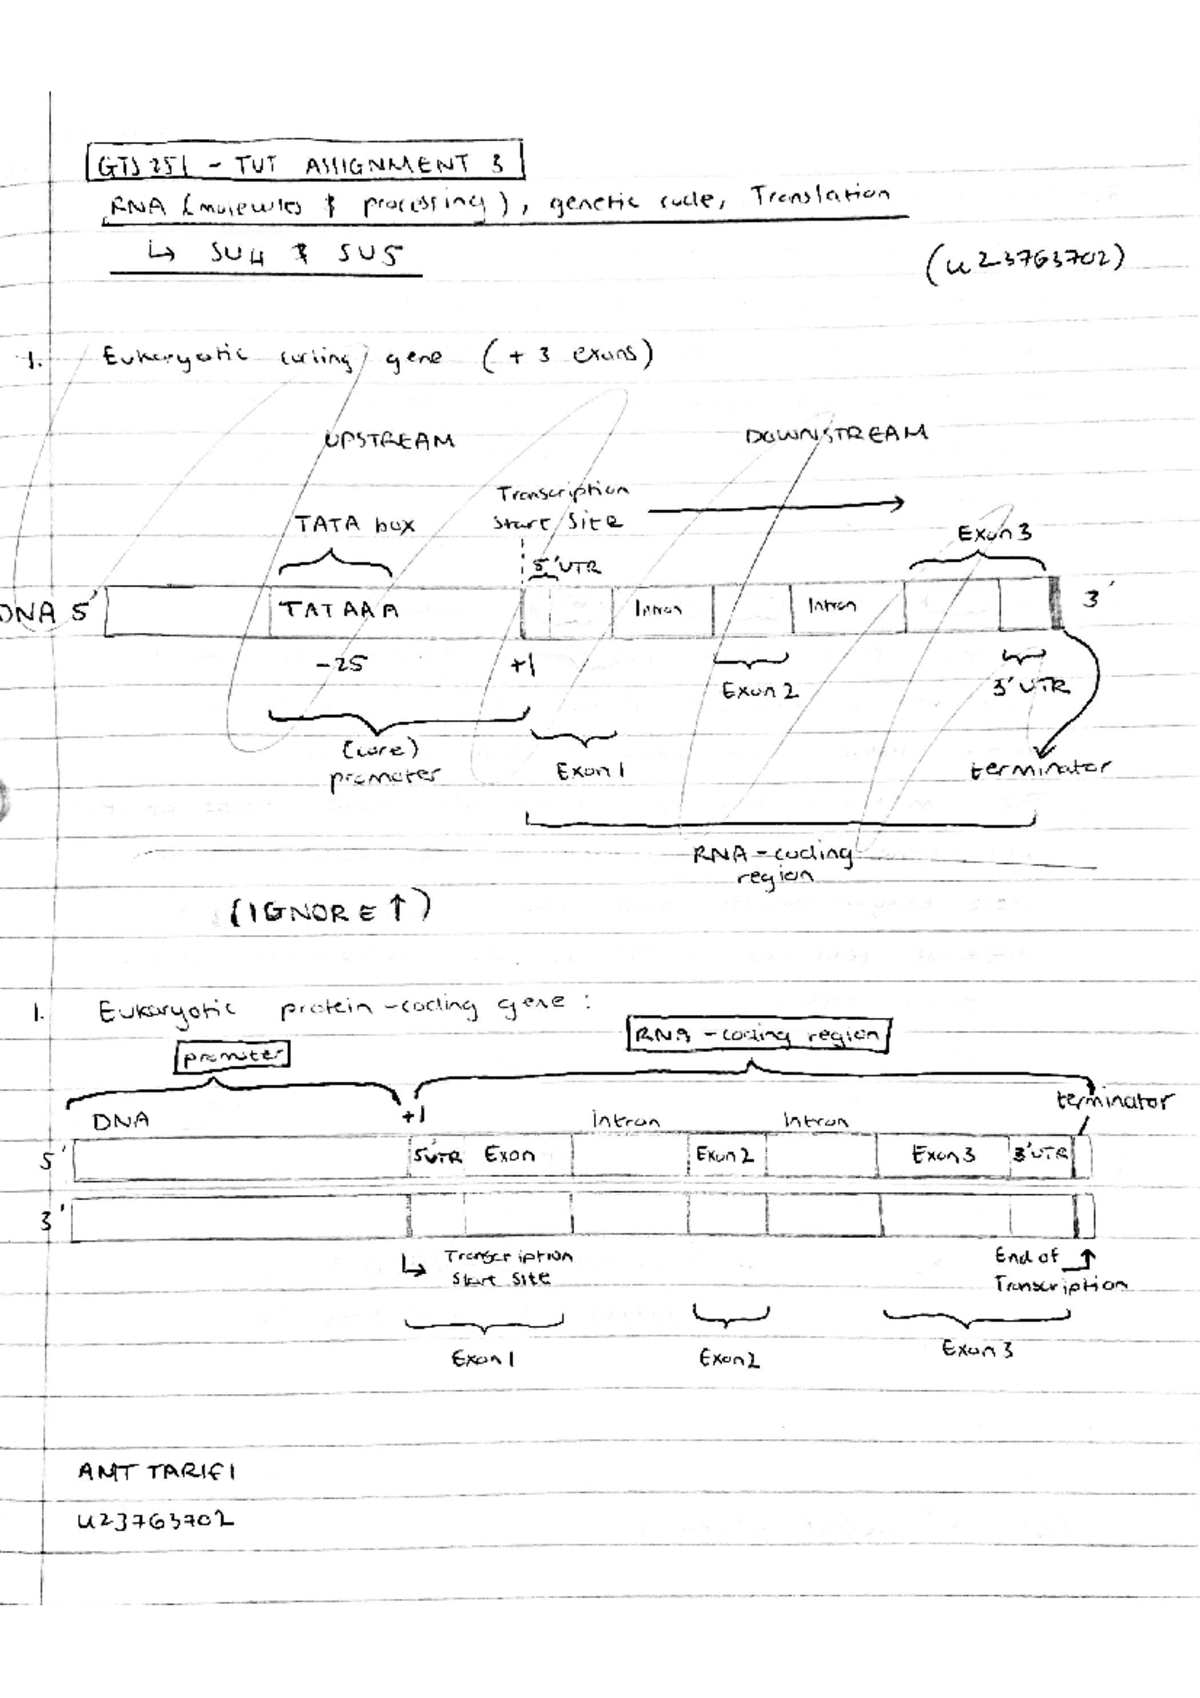 GTS 251 - TUT ASSIGNMENT 3
RNA (molecules & processing), genetic code, Translation
↳ SU4 & SU5
(u23763702)
1. Eukaryotic coding gene (+ 3 exons)
UPSTREAM DOWNSTREAM
Transcription
TATA box Start Site →
Exon 3
5'UTR
DNA 5' TATAAA Intron Intron 3'
-25 +1
Exon 2 3'UTR
(core)
promoter Exon 1 terminator
RNA-coding
region
(IGNORE ↑)
1. Eukaryotic protein-coding gene:
promoter RNA-coding region
DNA +1 intron Intron terminator
5' 5'UTR Exon Exon 2 Exon 3 3'UTR
3'
↳ Transcription End of ↑
Start Site Transcription
Exon 1 Exon 2 Exon 3
AMT TARIFI
u23763702